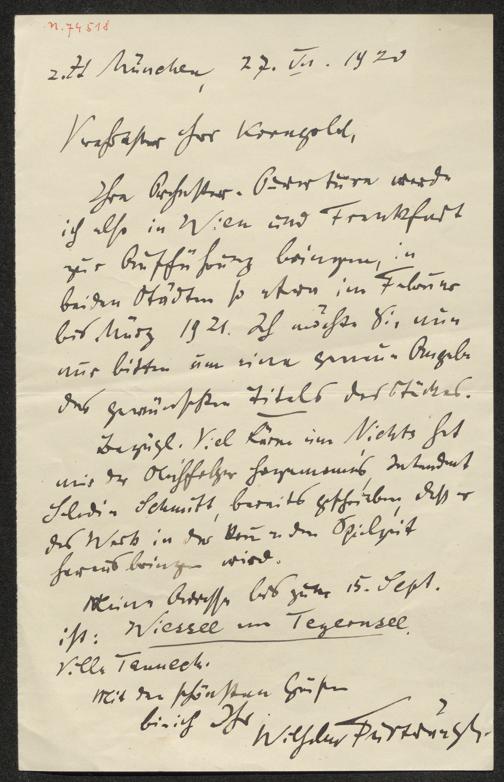 N. 74518
z. Zt München, 27. VII. 1920
Verehrter Herr Korngold,
Ihre Orchester-Ouverture werde
ich also in Wien und Frankfurt
zur Aufführung bringen, in
beiden Städten so etwa im Februar
bis März 1921. Ich möchte Sie nun
nur bitten um eine genaue Angabe
des gewünschten Titels des Stückes.
Bezügl. Viel Lärm um Nichts hat
mir der Nachfolger Hagemanns, Intendant
Saladin Schmitt, bereits geschrieben, dass er
das Werk in der kommenden Spielzeit
herausbringen wird.
Meine Adresse bis zum 15. Sept.
ist: Wiessee am Tegernsee
Villa Tanneck.
Mit den schönsten Grüßen
bin ich Ihr
Wilhelm Furtwängler